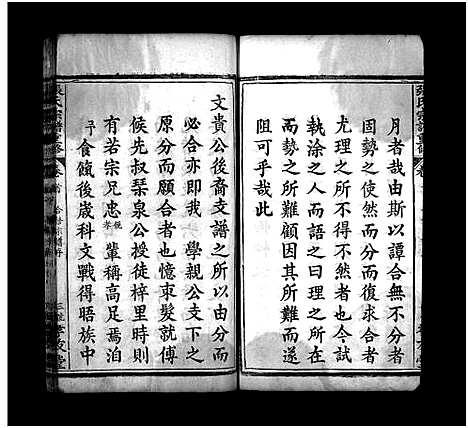 月者哉由斯以譚合無不分者
因勢之使然而分而復求合者
尤理之所不得不然者也今試
執涂之人而語之曰理之所在
而勢之所難顧因勢之所難而遂
阻可乎哉此
文貴公後裔支譜之所以由分而
必合亦即我 學親公支下之
原分而願合者也憶束髮就傅
候先叔棐泉公授徒梓里時則
有若宗兄忠 孝 輩稱高足焉洎
予食餼後歲科文戰得晤族中